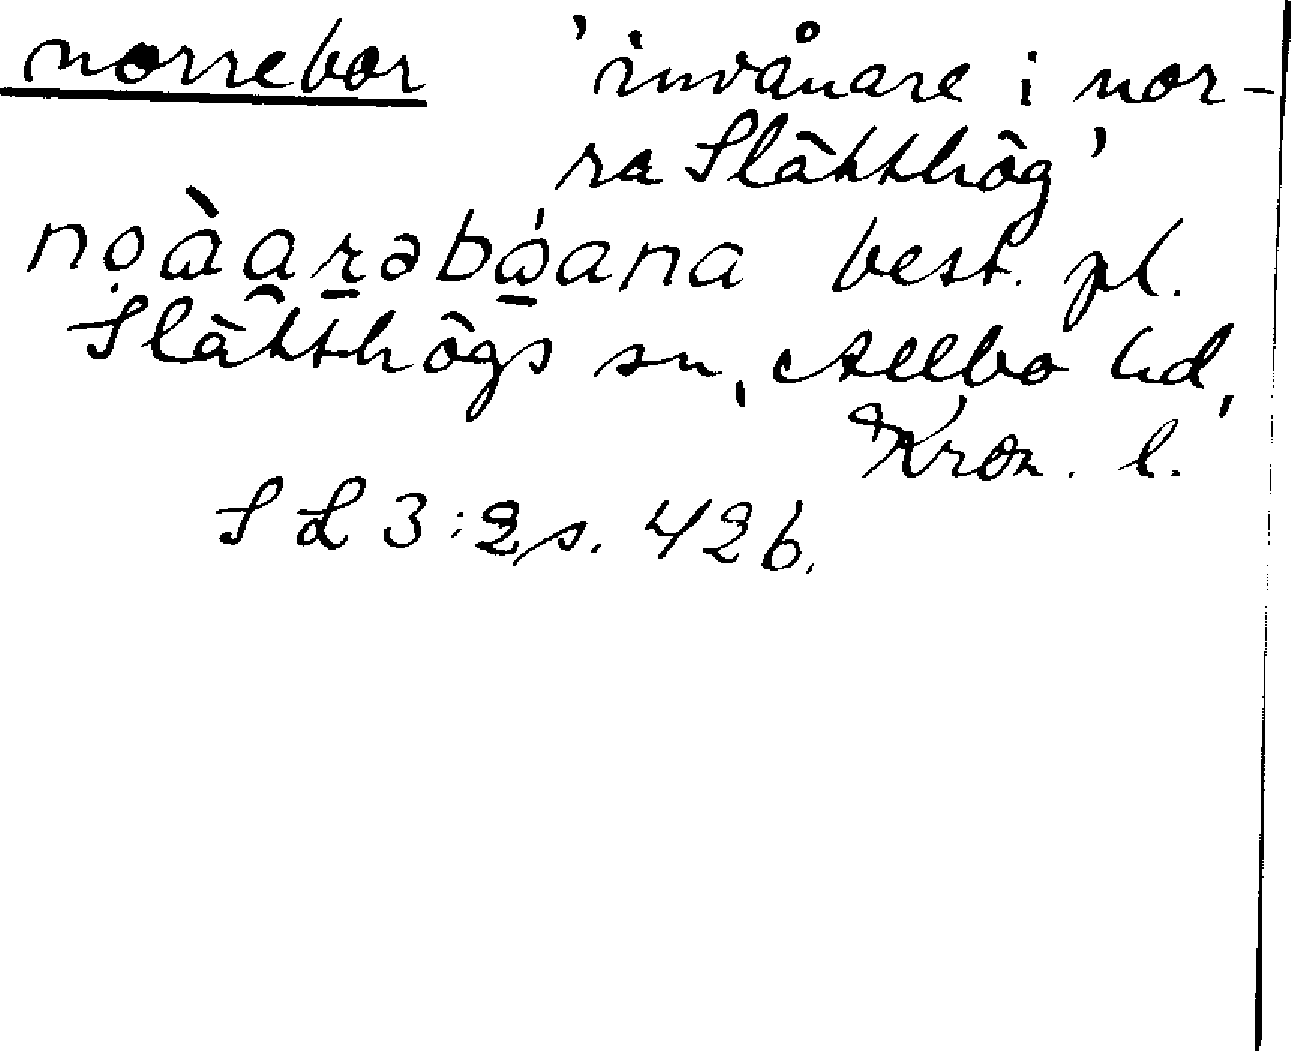 norrebor 'invånare i nor-
ra Slätthög'
nọàa̯r̠əbáana best. pl.
Slätthögs sn, Allbo hd,
Kron. l.
SL 3:2 s. 426.